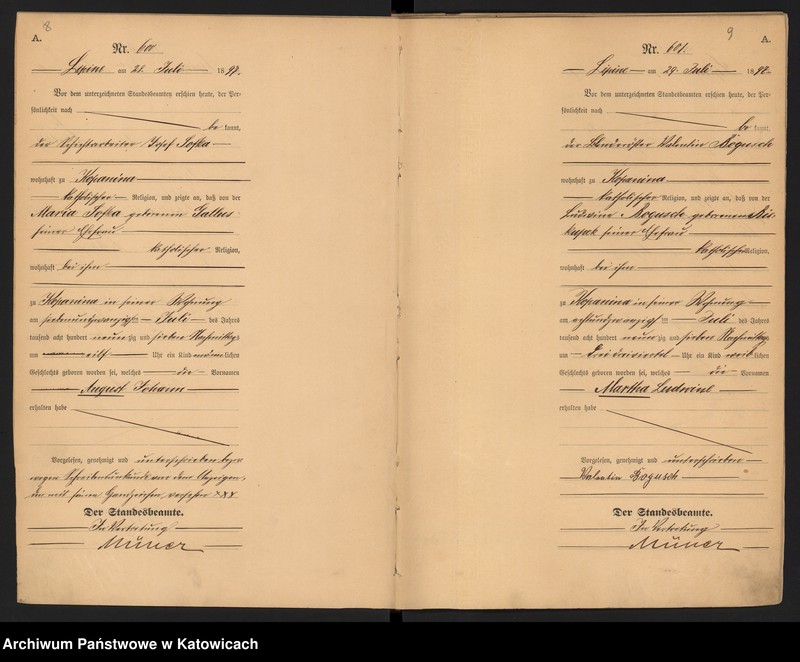 8
A.
Nr. 600
Lipine am 28. Juli 1897.
Vor dem unterzeichneten Standesbeamten erschien heute, der Per-
sönlichkeit nach
be kannt,
der Schichtarbeiter Josef Sofka
wohnhaft zu Kopanina
katholischer Religion, und zeigte an, daß von der
Maria Sofka geborenen Gallus
seiner Ehefrau
katholischer Religion,
wohnhaft bei ihm
zu Kopanina in seiner Wohnung
am siebenundzwanzigsten Juli des Jahres
tausend acht hundert neunzig und sieben Nachmittags
um elf Uhr ein Kind männlichen
Geschlechts geboren worden sei, welches die Vornamen
August Johann
erhalten habe
Vorgelesen, genehmigt und unterschrieben bezw.
wegen Schreibensunkunde von dem Anzeigen-
den mit seinem Handzeichen versehen xxx
Der Standesbeamte.
In Vertretung
Müner
9
A.
Nr. 601.
Lipine am 29. Juli 1897.
Vor dem unterzeichneten Standesbeamten erschien heute, der Per-
sönlichkeit nach
be kannt,
der Valentin Rogusch
wohnhaft zu Kopanina
katholischer Religion, und zeigte an, daß von der
Ludwina Rogusch geborenen
seiner Ehefrau
katholischer Religion,
wohnhaft bei ihm
zu Kopanina in seiner Wohnung
am achtundzwanzigsten Juli des Jahres
tausend acht hundert neunzig und sieben Nachmittags
um dreidreiviertel Uhr ein Kind weiblichen
Geschlechts geboren worden sei, welches die Vornamen
Martha Ludwine
erhalten habe
Vorgelesen, genehmigt und unterschrieben
Valentin Rogusch
Der Standesbeamte.
In Vertretung
Müner
Archiwum Państwowe w Katowicach